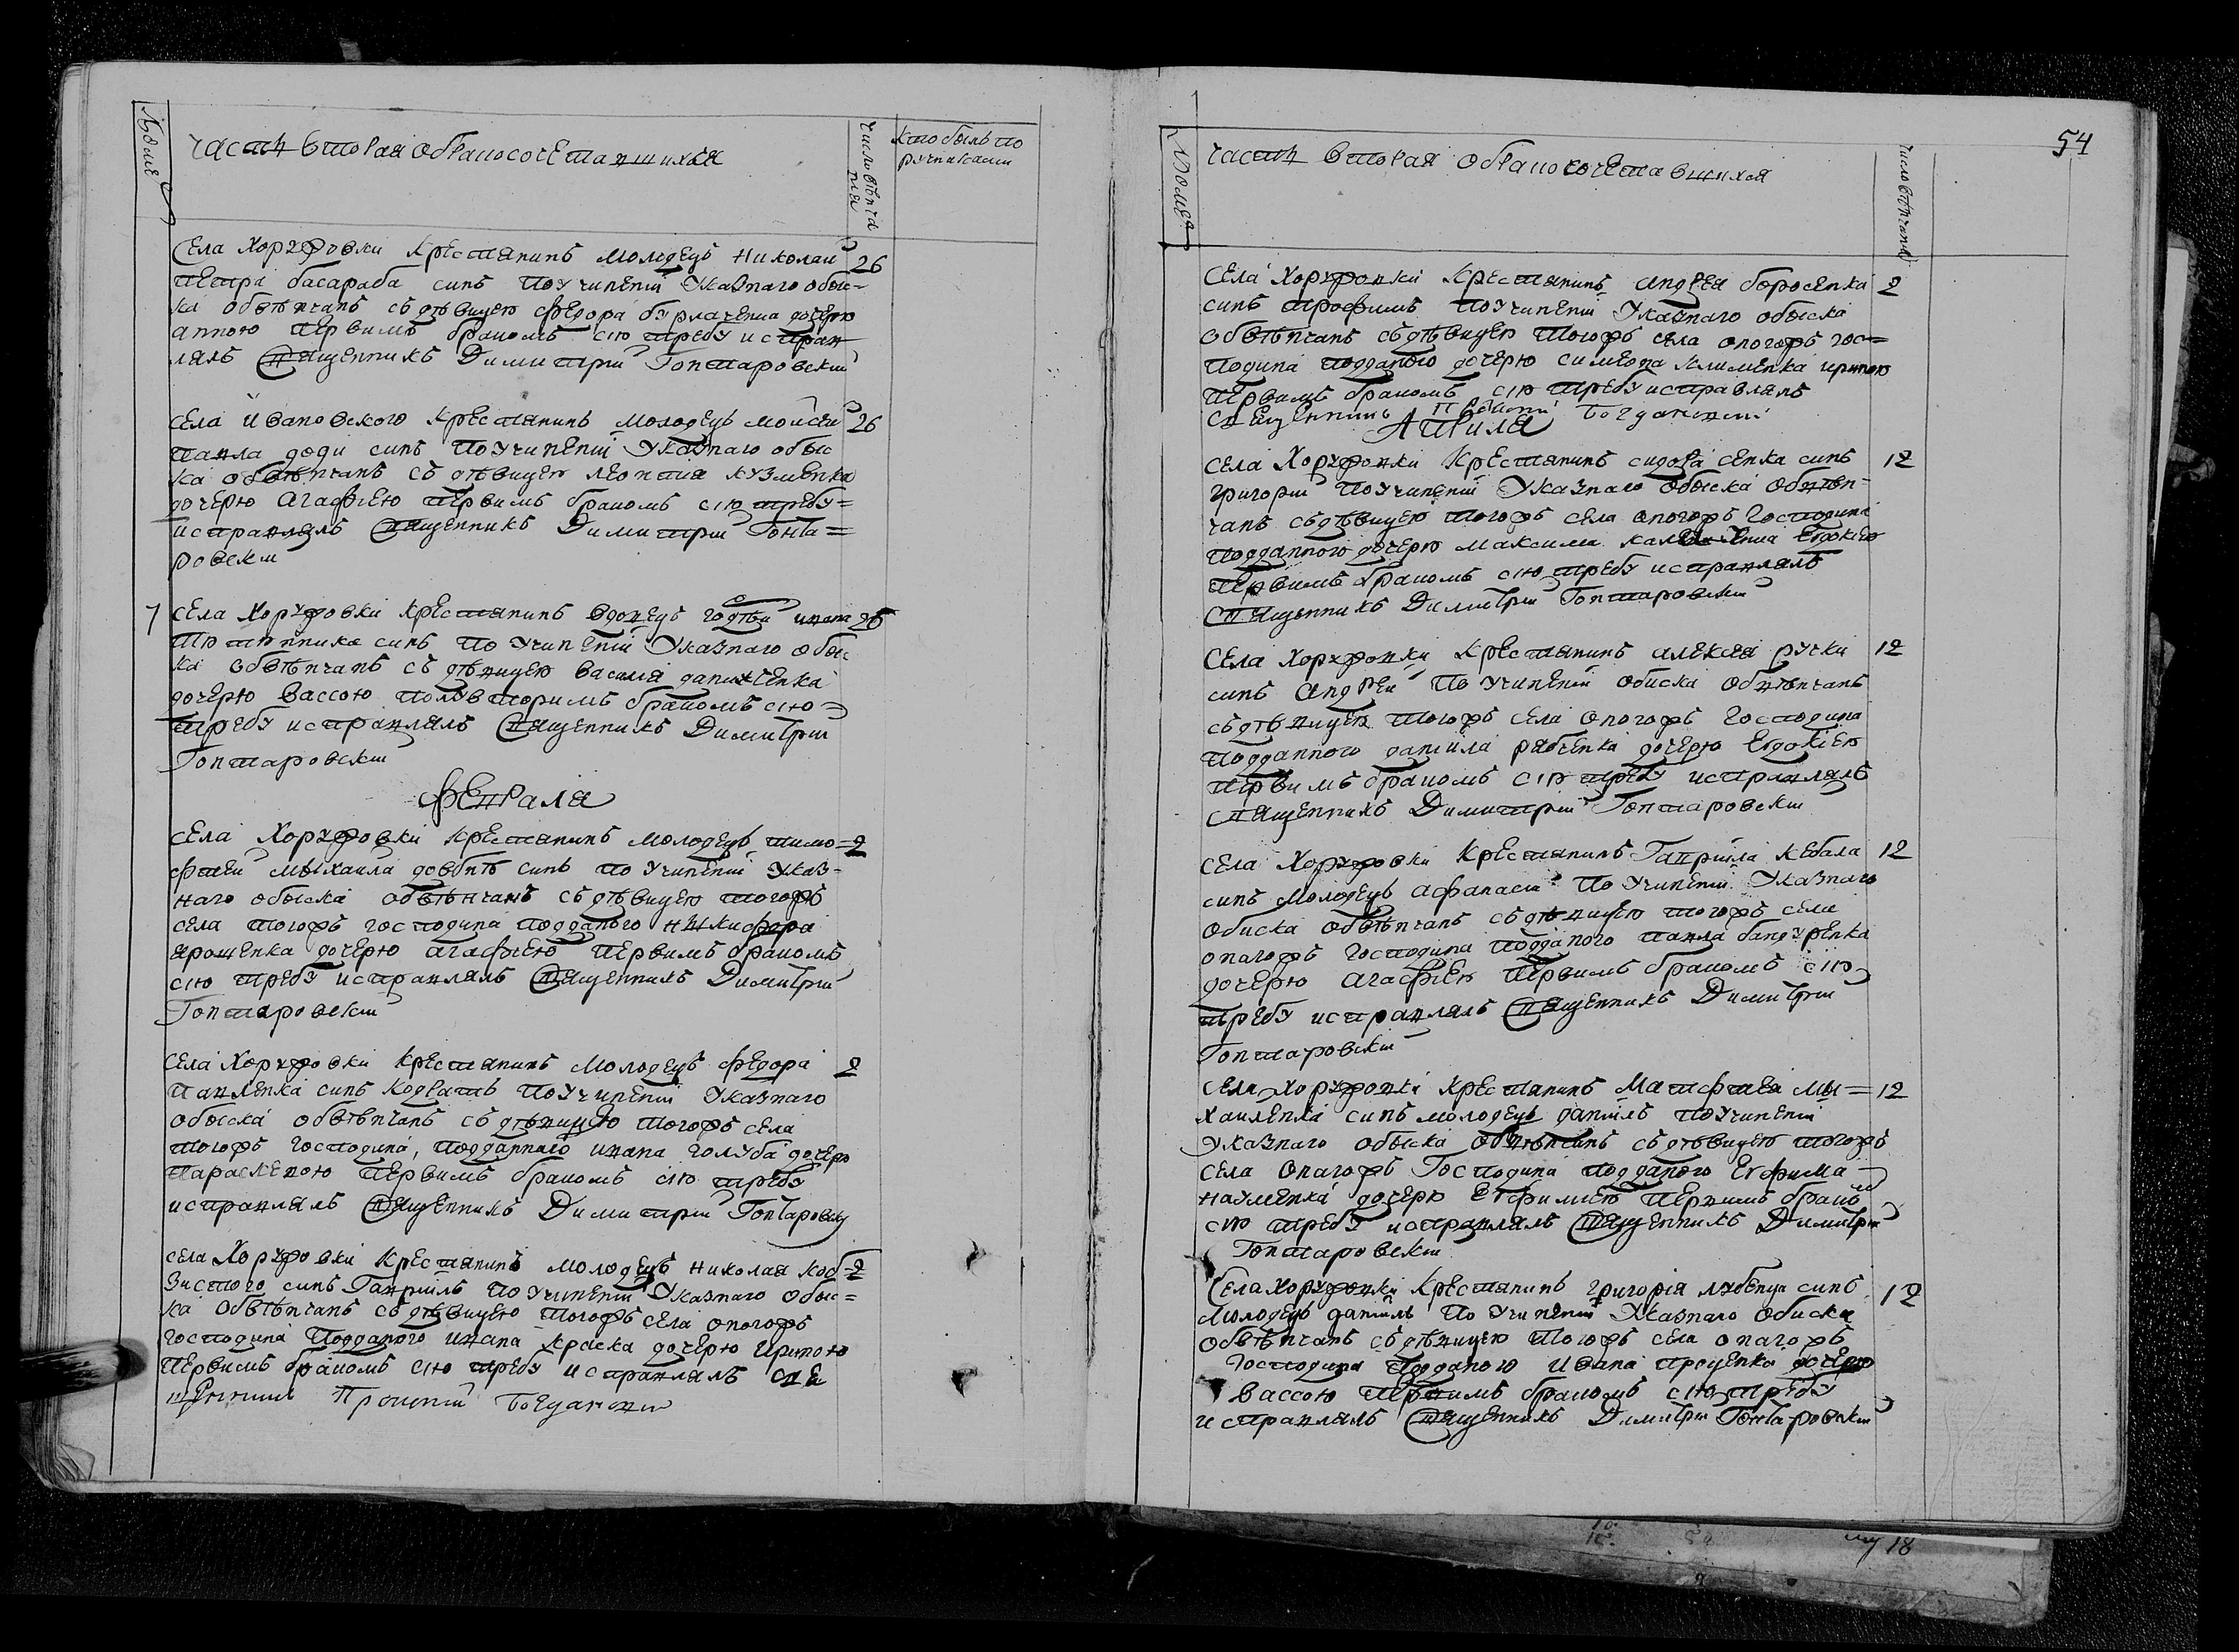 № домов
часть вторая о бракосочетавшихся
число венчания
кто был по
ручиками
Села Хоружовки крестянинъ молодецъ Николай 26
Петра басараба синъ по учиненіи указнаго обыс=
ка обвѣнчанъ съ дѣвицею федора бурлаченка дочерю
анною первимъ бракомъ сію требу исправ
лялъ Священникъ Димитрій Гонтаровский
села Ивановского крестянинъ молодецъ мойсей 26
павла диди синъ по учиненіи указнаго обыс
ка обвѣнчанъ съ дѣвицею леонтия кузменка
дочерю агафиею первимъ бракомъ сію требу=
исправлялъ Священникъ Димитрій Гонта=
ровский
7 села Хоружовки крестянинъ вдовецъ ивана 26
синъ по учиненіи указнаго обыс
ка обвѣнчанъ съ дѣвицею василія данилченка
дочерю вассою полувторимъ бракомъ сію=
требу исправлялъ Священникъ Димитрій
Гонтаровский
февраля
села Хоружовки крестянинъ молодецъ тимо= 2
фтей мыхаила довбнѣ синъ по учиненіи указ=
наго обыска обвѣнчанъ съ дѣвицею тогожъ
села тогожъ господина подданого никифора
ярошенка дочерю агафиею первимъ бракомъ
сію требу исправлялъ Священникъ Димитрій
Гонтаровский
села Хоружовки крестянинъ молодецъ федора 2
павленка синъ кодратъ по учиненіи указнаго
обыска обвѣнчанъ съ дѣвицею тогожъ села
тогожъ господина, подданнаго ивана голуба дочерю
параскевою первимъ бракомъ сію требу
исправлялъ Священникъ Димитрій Гонтаровский
села Хоружовки крестянинъ молодецъ николая 2
синъ Гавріилъ по учиненіи указнаго обыс=
ка обвѣнчанъ съ дѣвицею тогожъ села оногожъ
господина подданого ивана краска дочерю ириною
первимъ бракомъ сію требу исправлялъ свя
щенникъ Прокопій Богдановий
54
№ домов
часть вторая о бракосочетавшихся
число венчания
села Хоружовки крестянинъ андрея боросенка 2
синъ трофимъ по учиненіи указнаго обыска
обвѣнчанъ съ дѣвицею тогожъ села оногожъ гос=
подина подданого дочерю симеона клименка ириною
первимъ бракомъ сію требу исправлялъ
священникъ Прокопій Богдановий
Априля
села Хоружовки крестянинъ сидора сенка синъ 12
григорій по учиненіи указнаго обыска обвѣн=
чанъ съ дѣвицею тогожъ села оногожъ господина
подданного дочерю максима Евдокіею
первимъ бракомъ сію требу исправлялъ
Священникъ Димитрій Гонтаровский
села Хоружовки крестянинъ алексея ручки 12
синъ андрей по учиненіи обиска обвѣнчанъ
съ дѣвицею тогожъ села оногожъ господина
подданного даниила рябченка дочерю Евдокіею
первимъ бракомъ сію требу исправлялъ
священникъ Димитрій Гонтаровский
села Хоружовки крестянинъ Гавріила кебала 12
синъ молодецъ афанасий по учиненіи указнаго
обиска обвѣнчанъ съ дѣвицею тогожъ села
оногожъ господина подданого павла бандуренка
дочерю агафіею первимъ бракомъ сію
требу исправлялъ Священникъ Димитрій
Гонтаровский
села Хоружовки крестянинъ Матфтея мы= 12
хаиленка синъ молодецъ даниилъ по учиненіи
указнаго обыска обвѣнчанъ съ дѣвицею тогожъ
села оногожъ Господина подданого Евфима
науменка дочерю Евфимиею первимъ бракомъ
сію требу исправлялъ Священникъ Димитрій
Гонтаровский
Села Хоружовки крестянинъ григорія лубенца синъ 12
молодецъ даниилъ по учиненіи указнаго обиска
обвѣнчанъ съ дѣвицею тогожъ села оногожъ
господина подданого ивана проценка дочерю
вассою первимъ бракомъ сію требу
исправлялъ Священникъ Димитрій Гонтаровский